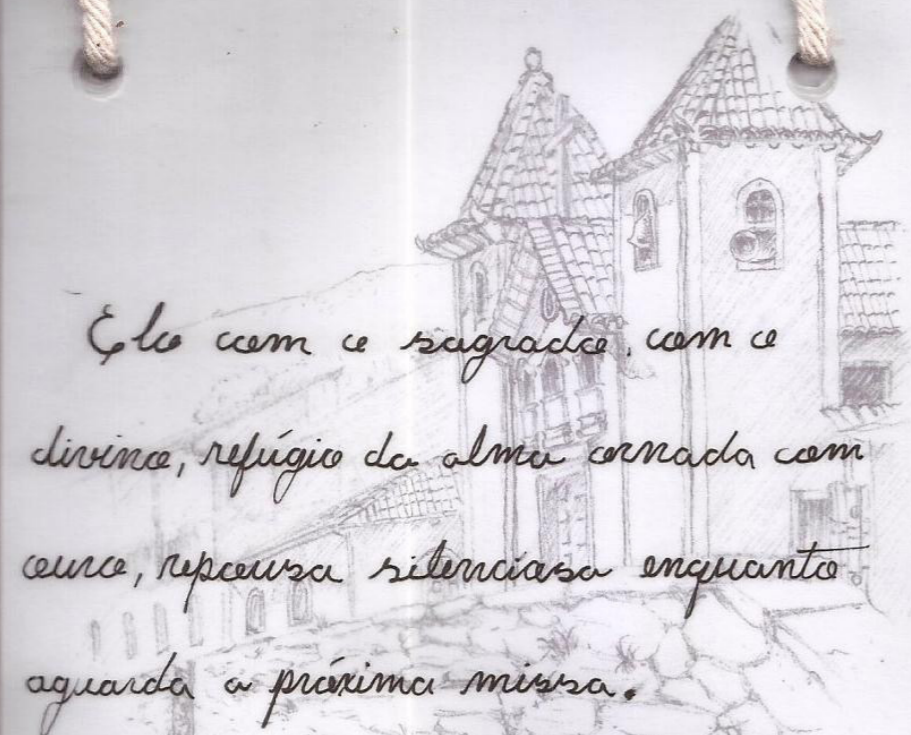 Elo com o sagrado, com o
divino, refúgio da alma ornada com
ouro, repousa silenciosa enquanto
aguarda a próxima missa.